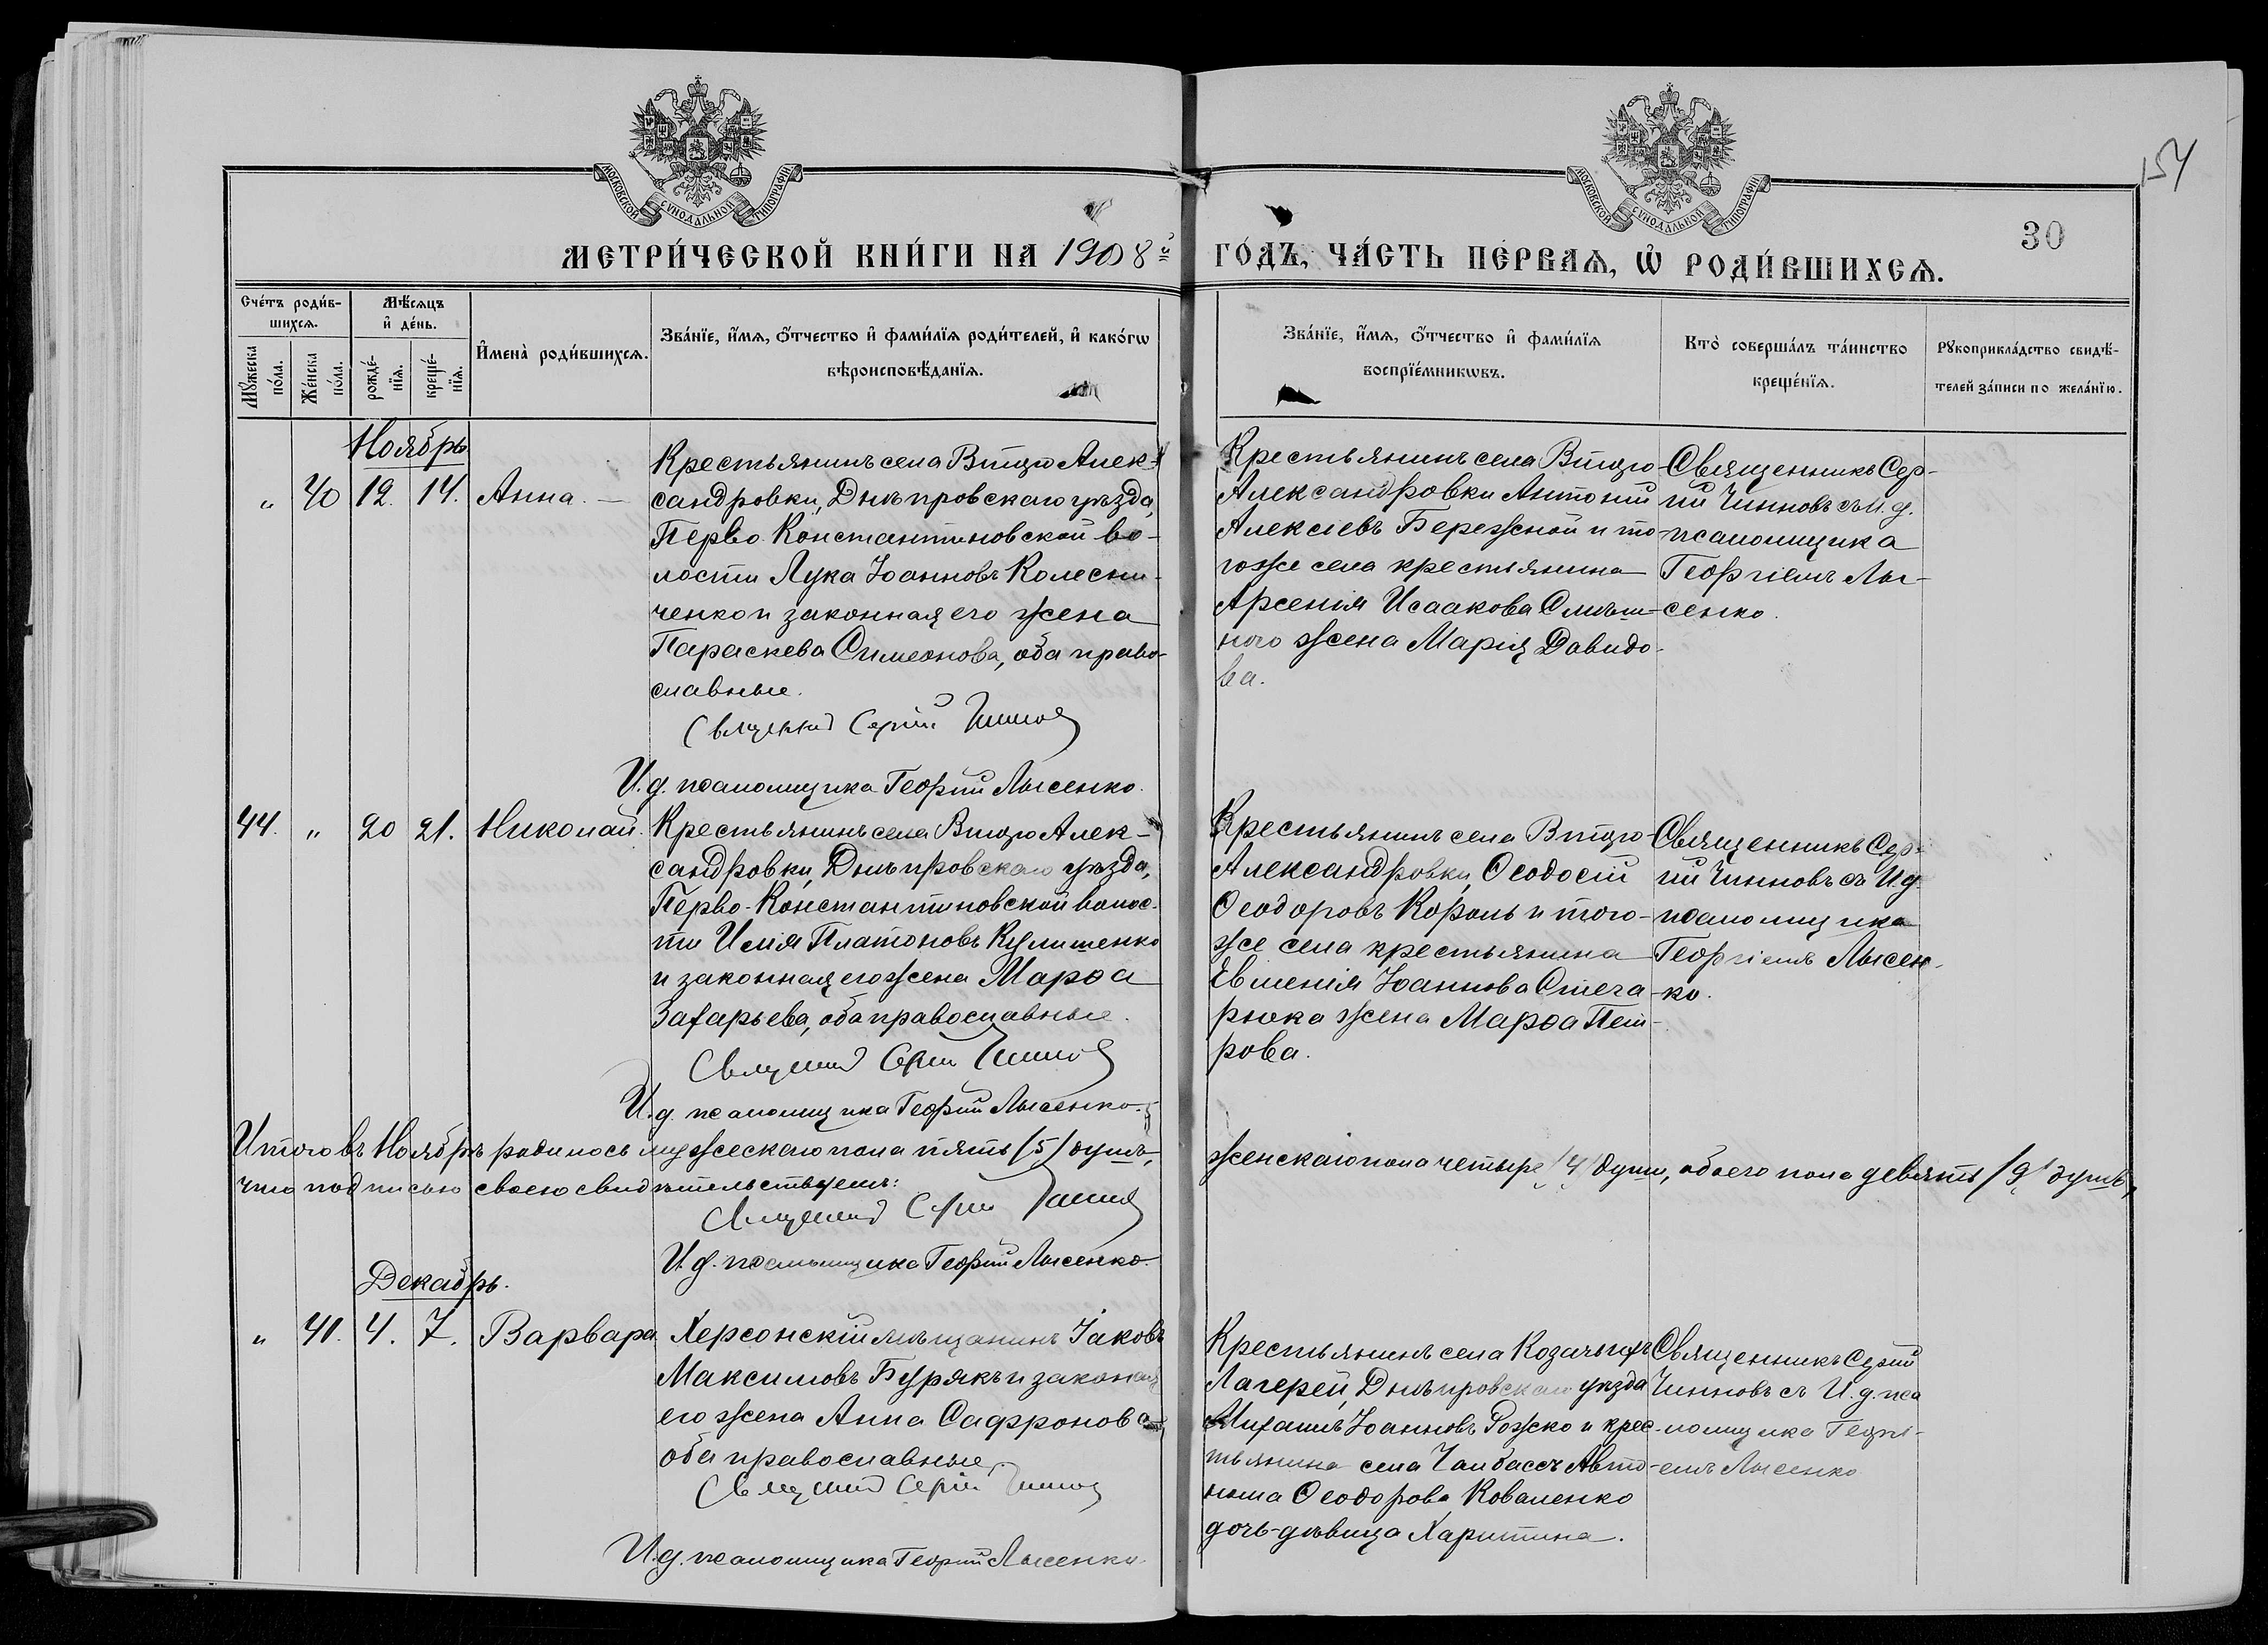 МОСКОВСКОЙ СѴНОДАЛЬНОЙ ТИПОГРАФІИ
МОСКОВСКОЙ СѴНОДАЛЬНОЙ ТИПОГРАФІИ
154
30
МЕТРИ́ЧЕСКОЙ КНИ́ГИ НА 1908й
ГО́ДЪ, ЧА́СТЬ ПЕ́РВАЯ, Ѡ҆ РОДИ́ВШИХСЯ.
Сче́тъ роди́в-
шихся.
Мѣ́сяцъ
и҆ де́нь.
Мꙋ́жеска
по́ла.
Же́нска
по́ла.
рожде́-
нїя.
креще́-
нїя.
И҆мена̀ роди́вшихся.
Зва́нїе, и҆́мя, ѻ҆́тчество и҆ фами́лїя роди́телей, и҆ како́гѡ
вѣроисповѣ́данїя.
Зва́нїе, и҆́мя, ѻ҆́тчество и҆ фами́лїя
воспрїе́мникѡвъ.
Кто̀ соверша́лъ та́инство
креще́нїя.
Рꙋкоприкла́дство свидѣ́-
телей за́писи по жела́нїю.
Ноябрь
" 40 12. 14. Анна. —
Крестьянинъ села Второ Алек-
сандровки, Днѣпровскаго уѣзда,
Перво Константиновской во-
лости Лука Іоанновъ Колесни-
ченко и законная его жена
Параскева Симеонова, оба право-
славные.
Священникъ Сергій Чинновъ
И. д. псаломщика Георгій Лысенко.
Крестьянинъ села Второ-
Александровки Антоній
Алексіевъ Бережной и то-
гоже села крестьянина
Арсенія Исаакова Смѣш-
ного жена Марія Давидо-
ва.
Священникъ Сер-
гій Чинновъ съ И. д.
псаломщика
Георгіемъ Лы-
сенко.
44. " 20 21. Николай.
Крестьянинъ села Второ Алек-
сандровки, Днѣпровскаго уѣзда,
Перво-Константиновской волос-
ти Илія Платоновъ Кулишенко
и законная его жена Марѳа
Захарьева, оба православные.
Священникъ Сергій Чинновъ
И. д. псаломщика Георгій Лысенко.
Крестьянинъ села Второ-
Александровки, Ѳеодосій
Ѳеодоровъ Король и того-
же села крестьянина
Евменія Іоаннова
жена Марѳа Пет-
рова.
Священникъ Сер-
гій Чинновъ съ И. д.
псаломщика
Георгіемъ Лысен-
ко.
Итого въ Ноябрѣ родилось мужескаго пола пять /5/ душъ,
женскаго пола четыре /4/ души, обоего пола девять /9/ душъ,
что подписью своею свидѣтельствуемъ:
Священникъ Сергій Чинновъ
И. д. псаломщика Георгій Лысенко.
Декабрь.
" 41. 4. 7. Варвара
Херсонскій мѣщанинъ Іаковъ
Максимовъ Бурякъ и законная
его жена Анна Сафронова,
оба православные.
Священникъ Сергій Чинновъ
И. д. псаломщика Георгій Лысенко.
Крестьянинъ села Козачьихъ
Лагерей, Днѣпровскаго уѣзда
Михаилъ Іоанновъ Рожко и крес-
тьянина села Чалбассъ Авто-
нома Ѳеодорова Коваленко
дочь-дѣвица Харитина.
Священникъ Сергій
Чинновъ съ И. д. пса
ломщика Георгі-
емъ Лысенко